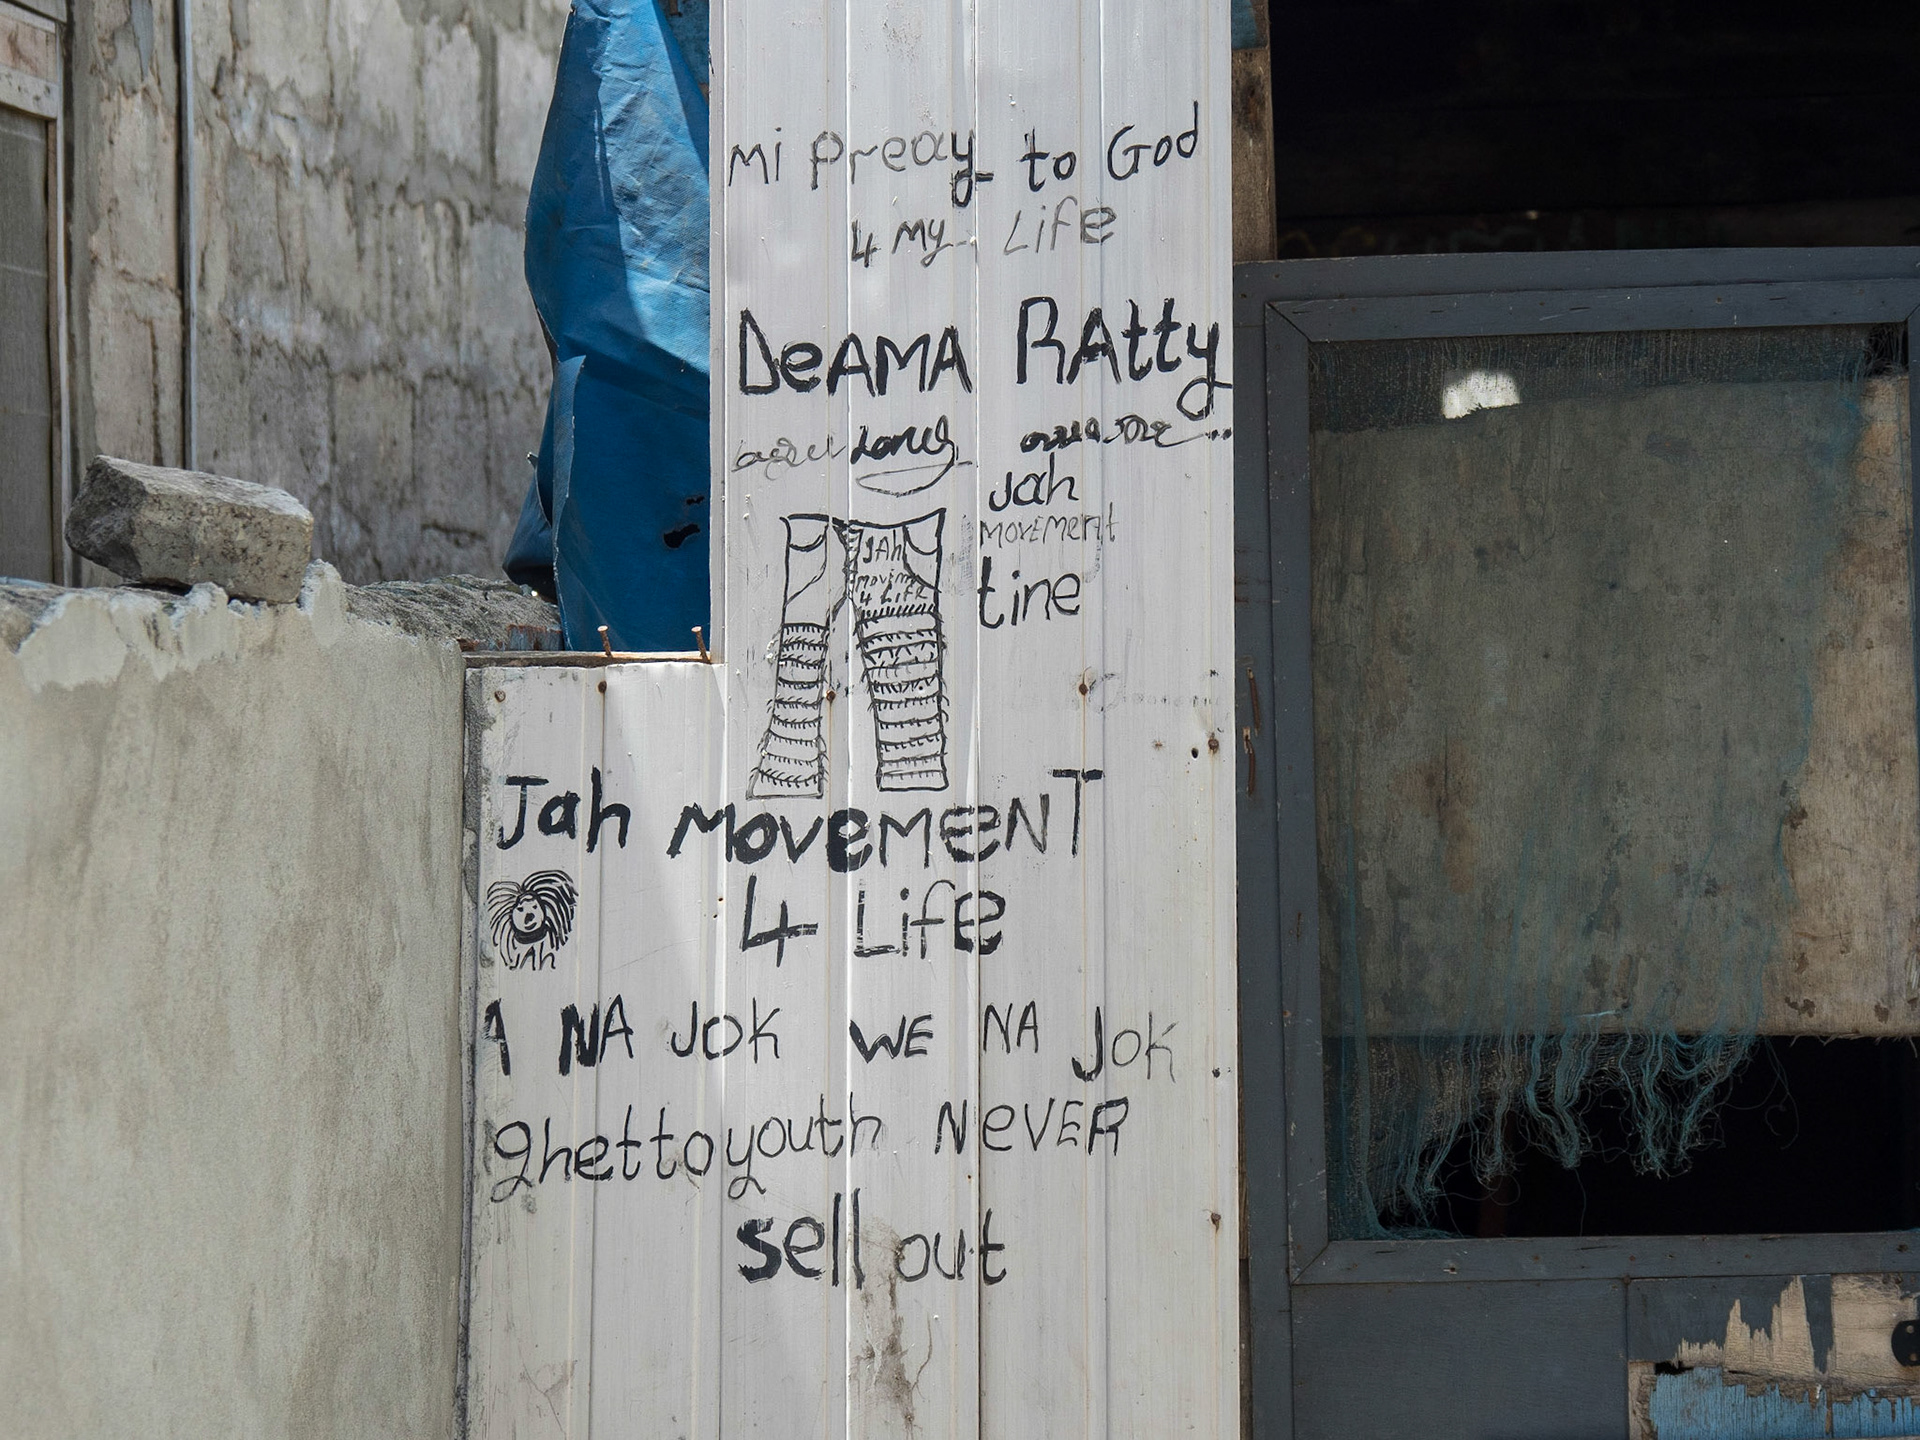 Mi Preay to God
4 My Life
DeAMA RAtty
Jah
MovEMent
tine
JAh
4 LifE
Jah MoveMeNT
4 Life
JAh
A NA JOK WE NA JOK
ghetto youth NeVER
sell out